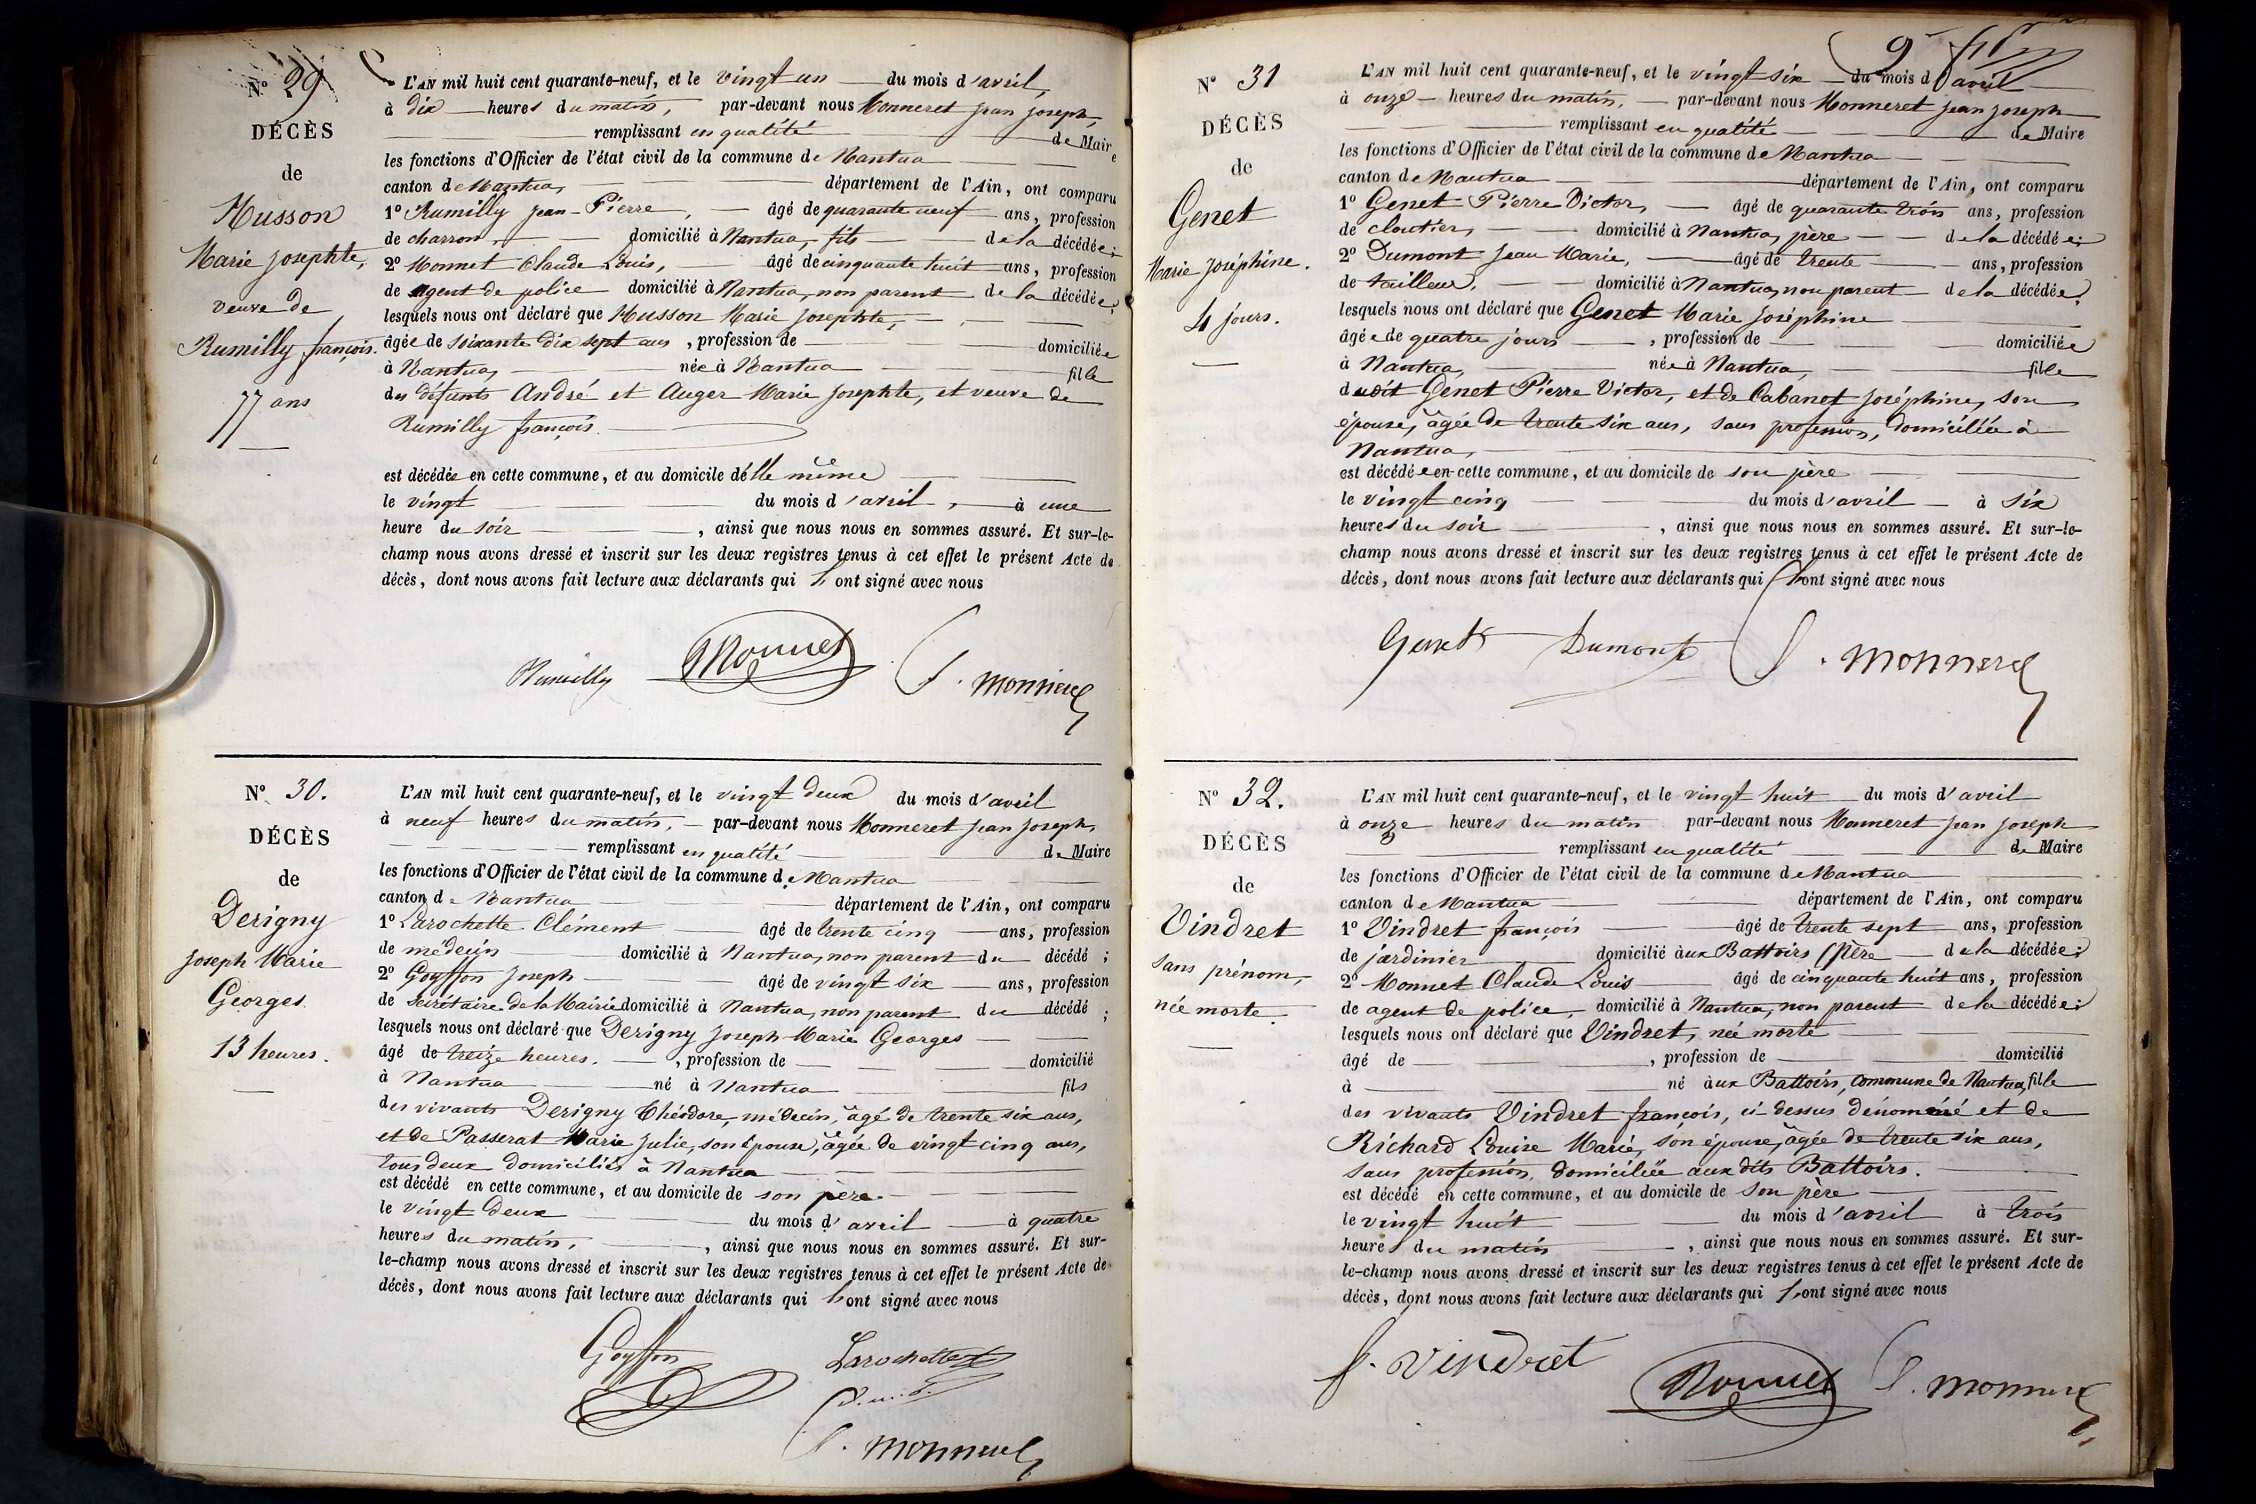 N° 29
DÉCÈS
de
Husson
Marie Josephte,
veuve de
Rumilly françois.
77 ans
L'AN mil huit cent quarante-neuf, et le vingt un du mois d'avril,
à dix heures du matin, par-devant nous Monneret Jean Joseph,
remplissant en qualité de Maire
les fonctions d'Officier de l'état civil de la commune de Nantua
canton de Nantua, département de l'Ain, ont comparu
1° Rumilly Jean-Pierre, âgé de quarante neuf ans, profession
de charron, domicilié à Nantua, fils de la décédée;
2° Monnet Claude Louis, âgé de cinquante huit ans, profession
de agent de police domicilié à Nantua, non parent de la décédée,
lesquels nous ont déclaré que Husson Marie Josephte,
âgée de soixante dix sept ans, profession de domiciliée
à Nantua, née à Nantua fille
des défunts André et Auger Marie Josephte, et veuve de
Rumilly françois.
est décédée en cette commune, et au domicile d'elle même
le vingt du mois d'avril, à une
heure du soir, ainsi que nous nous en sommes assuré. Et sur-le-
champ nous avons dressé et inscrit sur les deux registres tenus à cet effet le présent Acte de
décès, dont nous avons fait lecture aux déclarants qui ont signé avec nous
Rumilly Monnet J. Monneret
N° 30.
DÉCÈS
de
Derigny
Joseph Marie
Georges.
13 heures.
L'AN mil huit cent quarante-neuf, et le vingt deux du mois d'avril
à neuf heures du matin, par-devant nous Monneret Jean Joseph,
remplissant en qualité de Maire
les fonctions d'Officier de l'état civil de la commune de Nantua
canton de Nantua département de l'Ain, ont comparu
1° Larochette Clément âgé de trente cinq ans, profession
de médecin domicilié à Nantua, non parent du décédé;
2° Goyffon Joseph âgé de vingt six ans, profession
de secrétaire de la Mairie domicilié à Nantua, non parent du décédé;
lesquels nous ont déclaré que Derigny Joseph-Marie Georges
âgé de treize heures., profession de domicilié
à Nantua né à Nantua fils
des vivants Derigny Théodore, médecin, âgé de trente six ans,
et de Passerat Marie Julie, son épouse, âgée de vingt cinq ans,
tous deux domiciliés à Nantua
est décédé en cette commune, et au domicile de son père.
le vingt deux du mois d'avril à quatre
heures du matin,, ainsi que nous nous en sommes assuré. Et sur-
le-champ nous avons dressé et inscrit sur les deux registres tenus à cet effet le présent Acte de
décès, dont nous avons fait lecture aux déclarants qui ont signé avec nous
Goyffon Larochette
J. Monneret
9
N° 31
DÉCÈS
de
Genet
Marie Joséphine.
4 jours.
L'AN mil huit cent quarante-neuf, et le vingt six du mois d'avril
à onze heures du matin, par-devant nous Monneret Jean Joseph
remplissant en qualité de Maire
les fonctions d'Officier de l'état civil de la commune de Nantua
canton de Nantua département de l'Ain, ont comparu
1° Genet Pierre Victor, âgé de quarante trois ans, profession
de cloutier, domicilié à Nantua, père de la décédée;
2° Dumont Jean Marie, âgé de trente ans, profession
de tailleur, domicilié à Nantua, non parent de la décédée,
lesquels nous ont déclaré que Genet Marie Joséphine
âgée de quatre jours, profession de domiciliée
à Nantua, née à Nantua, fille
dudit Genet Pierre Victor, et de Cabanet Joséphine, son
épouse, âgée de trente six ans, sans profession, domiciliée à
Nantua,
est décédée en cette commune, et au domicile de son père
le vingt cinq du mois d'avril à six
heures du soir, ainsi que nous nous en sommes assuré. Et sur-le-
champ nous avons dressé et inscrit sur les deux registres tenus à cet effet le présent Acte de
décès, dont nous avons fait lecture aux déclarants qui ont signé avec nous
Genet Dumont J. Monneret
N° 32.
DÉCÈS
de
Vindret
sans prénom,
née morte.
L'AN mil huit cent quarante-neuf, et le vingt huit du mois d'avril
à onze heures du matin par-devant nous Monneret Jean Joseph
remplissant en qualité de Maire
les fonctions d'Officier de l'état civil de la commune de Nantua
canton de Nantua département de l'Ain, ont comparu
1° Vindret françois âgé de trente sept ans, profession
de jardinier domicilié aux Battoirs, père de la décédée;
2° Monnet Claude Louis âgé de cinquante huit ans, profession
de agent de police, domicilié à Nantua, non parent de la décédée;
lesquels nous ont déclaré que Vindret, née morte
âgé de, profession de domicilié
à né aux Battoirs, commune de Nantua, fille
des vivants Vindret françois, ci-dessus dénommé et de
Richard Louise Marie, son épouse, âgée de trente six ans,
sans profession, domiciliée aux dits Battoirs.
est décédé en cette commune, et au domicile de son père
le vingt huit du mois d'avril à trois
heures du matin, ainsi que nous nous en sommes assuré. Et sur-
le-champ nous avons dressé et inscrit sur les deux registres tenus à cet effet le présent Acte de
décès, dont nous avons fait lecture aux déclarants qui ont signé avec nous
f. Vindret Monnet J. Monneret